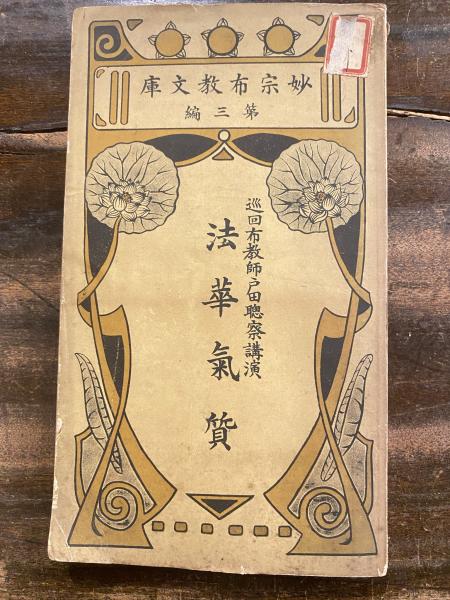 妙宗布教文庫
第三編
巡回布教師戸田聰察講演
法華氣質